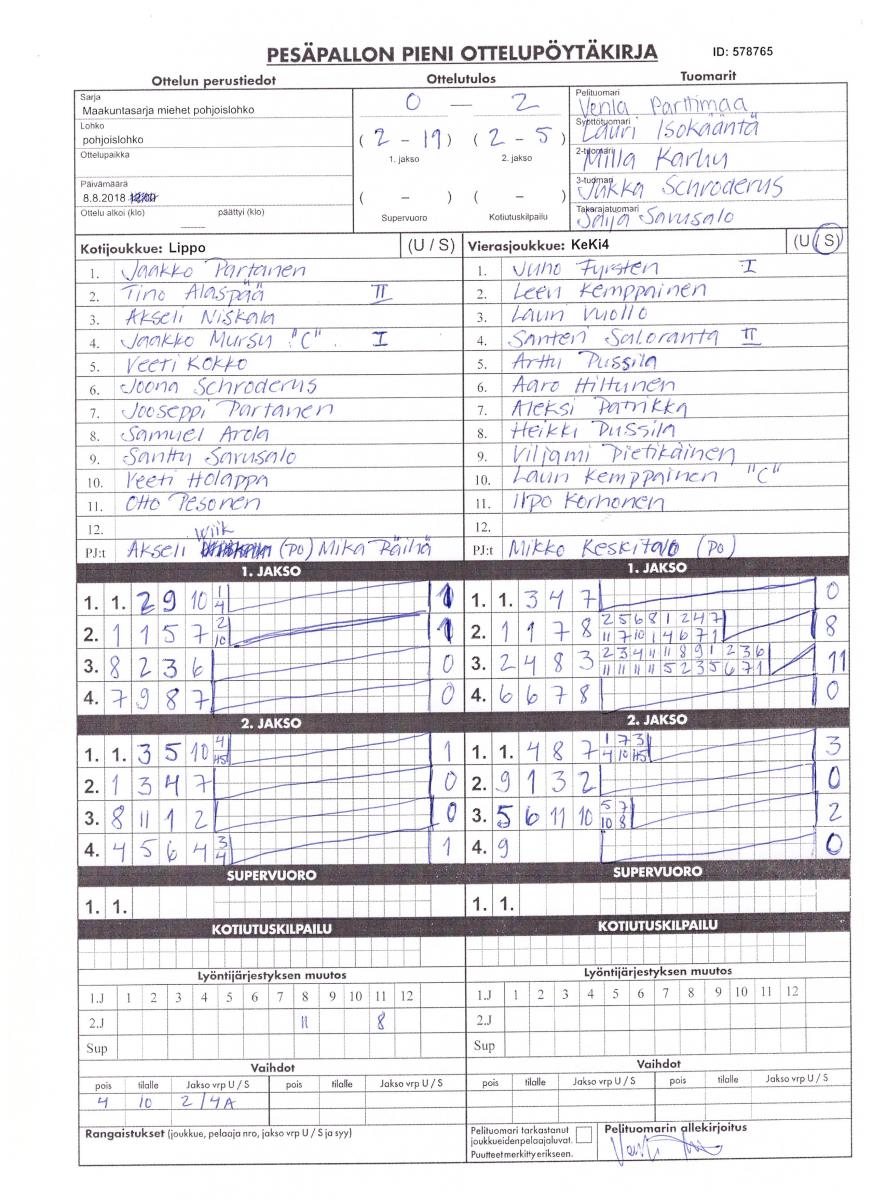 PESÄPALLON PIENI OTTELUPÖYTÄKIRJA ID: 578765
Ottelun perustiedot Ottelutulos Tuomarit
Sarja
Maakuntasarja miehet pohjoislohko
0 — 2
Pelituomari
Venla Parttimaa
Lohko
pohjoislohko
( 2 - 19 ) ( 2 - 5 )
1. jakso 2. jakso
Syöttötuomari
Lauri Isokääntä
Ottelupaikka
2-tuomari
Milla Karhu
Päivämäärä
8.8.2018
( - ) ( - )
3-tuomari
Jukka Schroderus
Ottelu alkoi (klo) päättyi (klo)
Supervuoro Kotiutuskilpailu
Takarajatuomari
Saija Savusalo
Kotijoukkue: Lippo (U / S) Vierasjoukkue: KeKi4 (U / S)
1. Jaakko Partanen 1. Juho Fyrsten I
2. Tino Alaspää II 2. Leevi Kemppainen
3. Akseli Niskala 3. Lauri Vuollo
4. Jaakko Mursu "C" I 4. Santeri Saloranta II
5. Veeti Kokko 5. Arttu Pussila
6. Joona Schroderus 6. Aaro Hiltunen
7. Jooseppi Partanen 7. Aleksi Patrikka
8. Samuel Arola 8. Heikki Pussila
9. Santtu Savusalo 9. Viljami Pietikäinen
10. Veeti Holappa 10. Lauri Kemppainen "C"
11. Otto Pesonen 11. Ilpo Korhonen
12. 12.
PJ:t Akseli Wiik (PO) Mika Räihä PJ:t Mikko Keskitalo (PO)
1. JAKSO 1. JAKSO
1. 1. 2 9 10 1 4 1 1. 1. 3 4 7 0
2. 1 1 5 7 2 10 1 2. 1 1 7 8 2 5 6 8 1 2 4 7 11 7 10 1 4 6 7 1 8
3. 8 2 3 6 0 3. 2 4 8 3 2 3 4 11 11 8 9 1 2 3 6 11 11 11 11 5 2 3 5 6 7 1 11
4. 7 9 8 7 0 4. 6 6 7 8 0
2. JAKSO 2. JAKSO
1. 1. 3 5 10 4 H5 1 1. 1. 4 8 7 1 7 3 4 10 H5 3
2. 1 3 4 7 0 2. 9 1 3 2 0
3. 8 11 1 2 0 3. 5 6 11 10 5 7 10 8 2
4. 4 5 6 4 3 4 1 4. 9 0
SUPERVUORO SUPERVUORO
1. 1. 1. 1.
KOTIUTUSKILPAILU KOTIUTUSKILPAILU
Lyöntijärjestyksen muutos Lyöntijärjestyksen muutos
1.J 1 2 3 4 5 6 7 8 9 10 11 12 1.J 1 2 3 4 5 6 7 8 9 10 11 12
2.J 11 8 2.J
Sup Sup
Vaihdot Vaihdot
pois tilalle Jakso vrp U / S pois tilalle Jakso vrp U / S pois tilalle Jakso vrp U / S pois tilalle Jakso vrp U / S
4 10 2/4A
Rangaistukset (joukkue, pelaaja nro, jakso vrp U / S ja syy)
Pelituomari tarkastanut
joukkueidenpelaajaluvat.
Puutteet merkitty erikseen.
Pelituomarin allekirjoitus